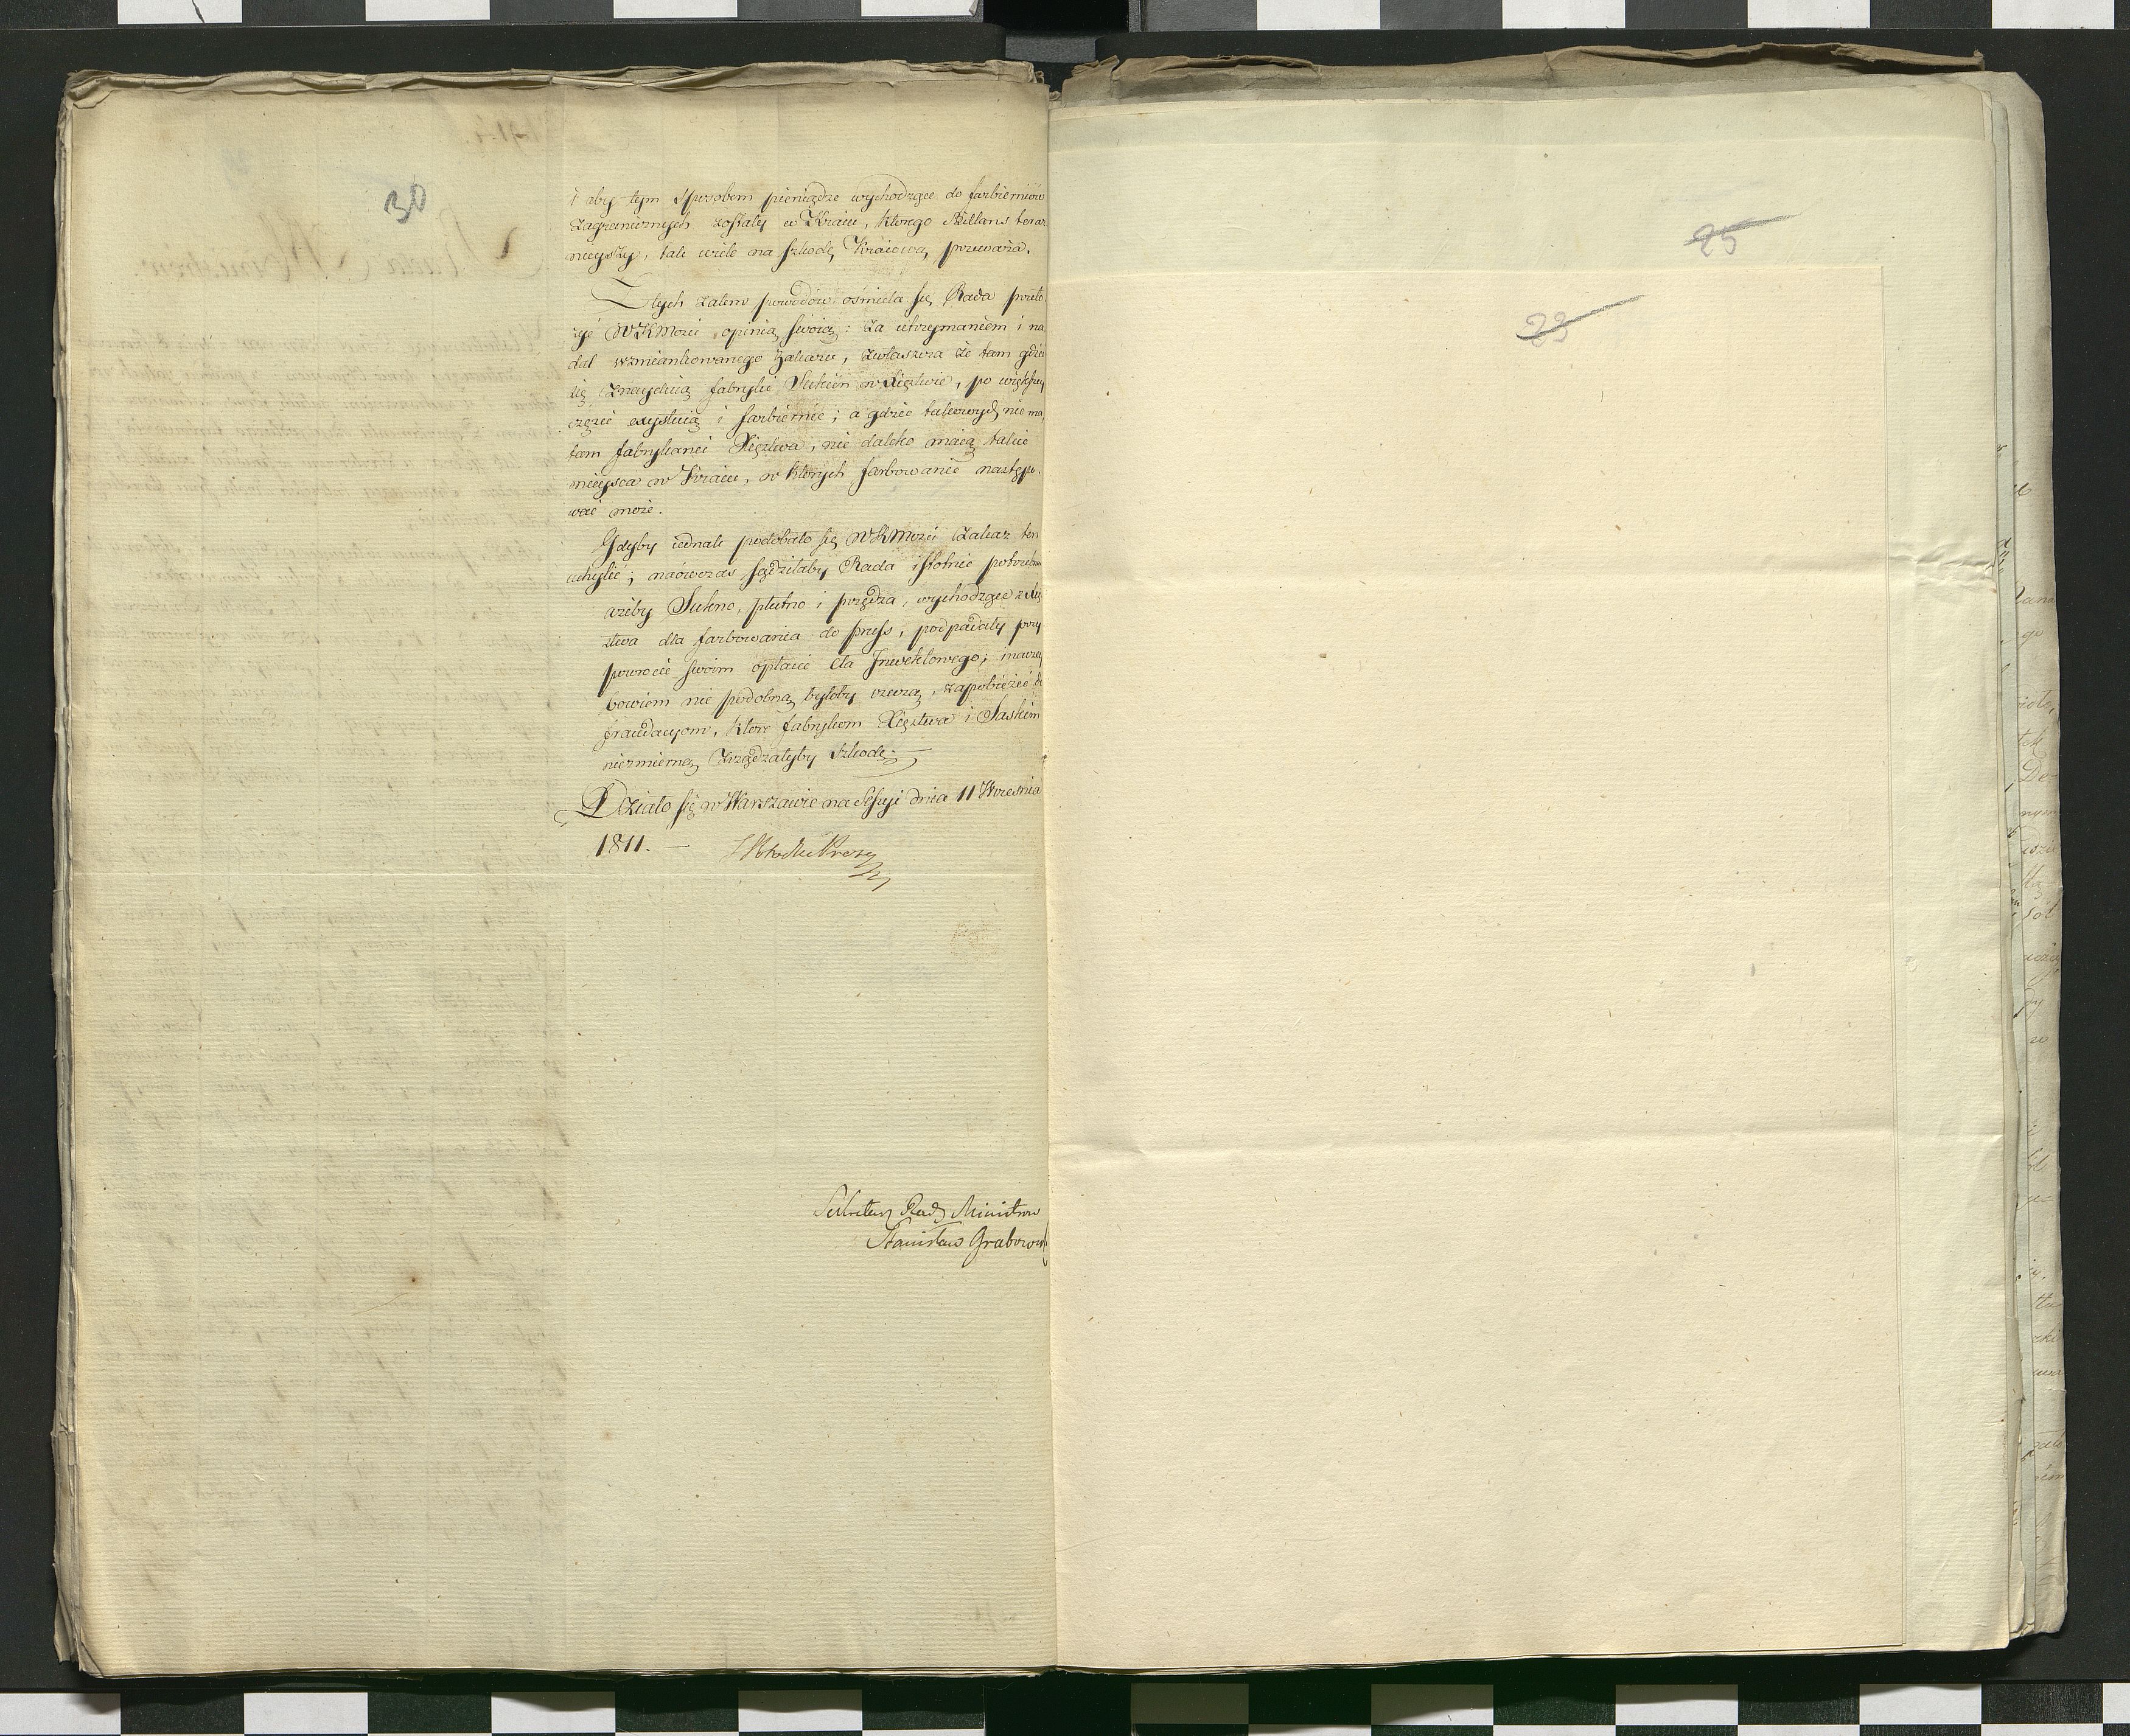 30
i aby tym sposobem pieniądze wychodzące do farbierniów
zagranicznych zostały w Kraiu, ktorego Billans teraz
nieyszy, tak wiele na szkodę Kraiową przeważa.
Z tych zatem powodów ośmiela się Rada przeło
żyć WKMości opinią swoią: za utrzymaniem i na
dal wzmiankowanego Zakazu, zwłaszcza że tam gdzie
się znayduią fabryki Sukien w Xięstwie, po większey
części exystuią i farbiernie; a gdzie takowych nie ma,
tam fabrykanci Xięstwa, nie daleko maią takie
mieysca w Kraiu, w ktorych farbowanie nastąpi-
wać może.
Gdyby iednak podobało się WKMości Zakaz ten
uchylić; naówczas sądziłaby Rada istotnie potrzebne
ażeby Sukno, płutno i przędza, wychodzące z Xię
stwa dla farbowania do Pruss, podpadały przy
powrocie swoim opłacie cła Inwektowego; inaczey
bowiem nie podobną byłoby rzeczą, zapobieżeć
fraudacyom, które fabrykom Xięstwa i Saskim
niezmierną zrządzałyby szkodę.
Działo się w Warszawie na Sessyi dnia 11 Września
1811. —
Sekretarz Rady Ministrow
Stanisław Grabowski
25
23